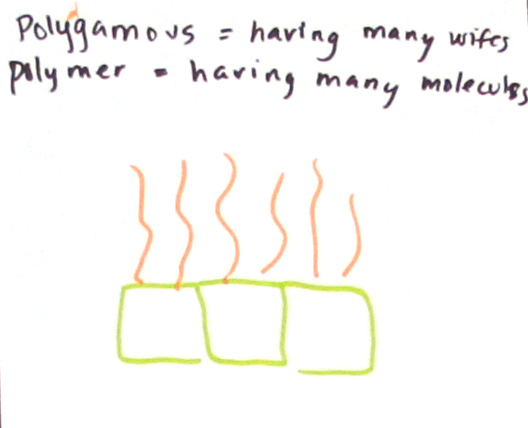 Polygamous = having many wifes
polymer = having many molecules